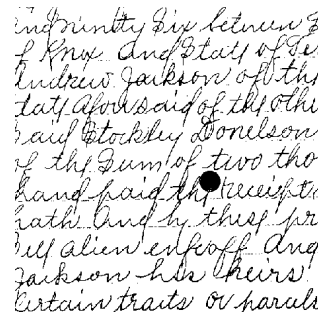 and ninety Six between S
f Knox and State of Te
Andrew Jackson of th
tate aforesaid of the othe
said Stockley Donelson
of the Sum of two tho
hand paid the receipt
hath and by these pr
sell alien enfeoff and
Jackson his heirs
Certain traits or parcels